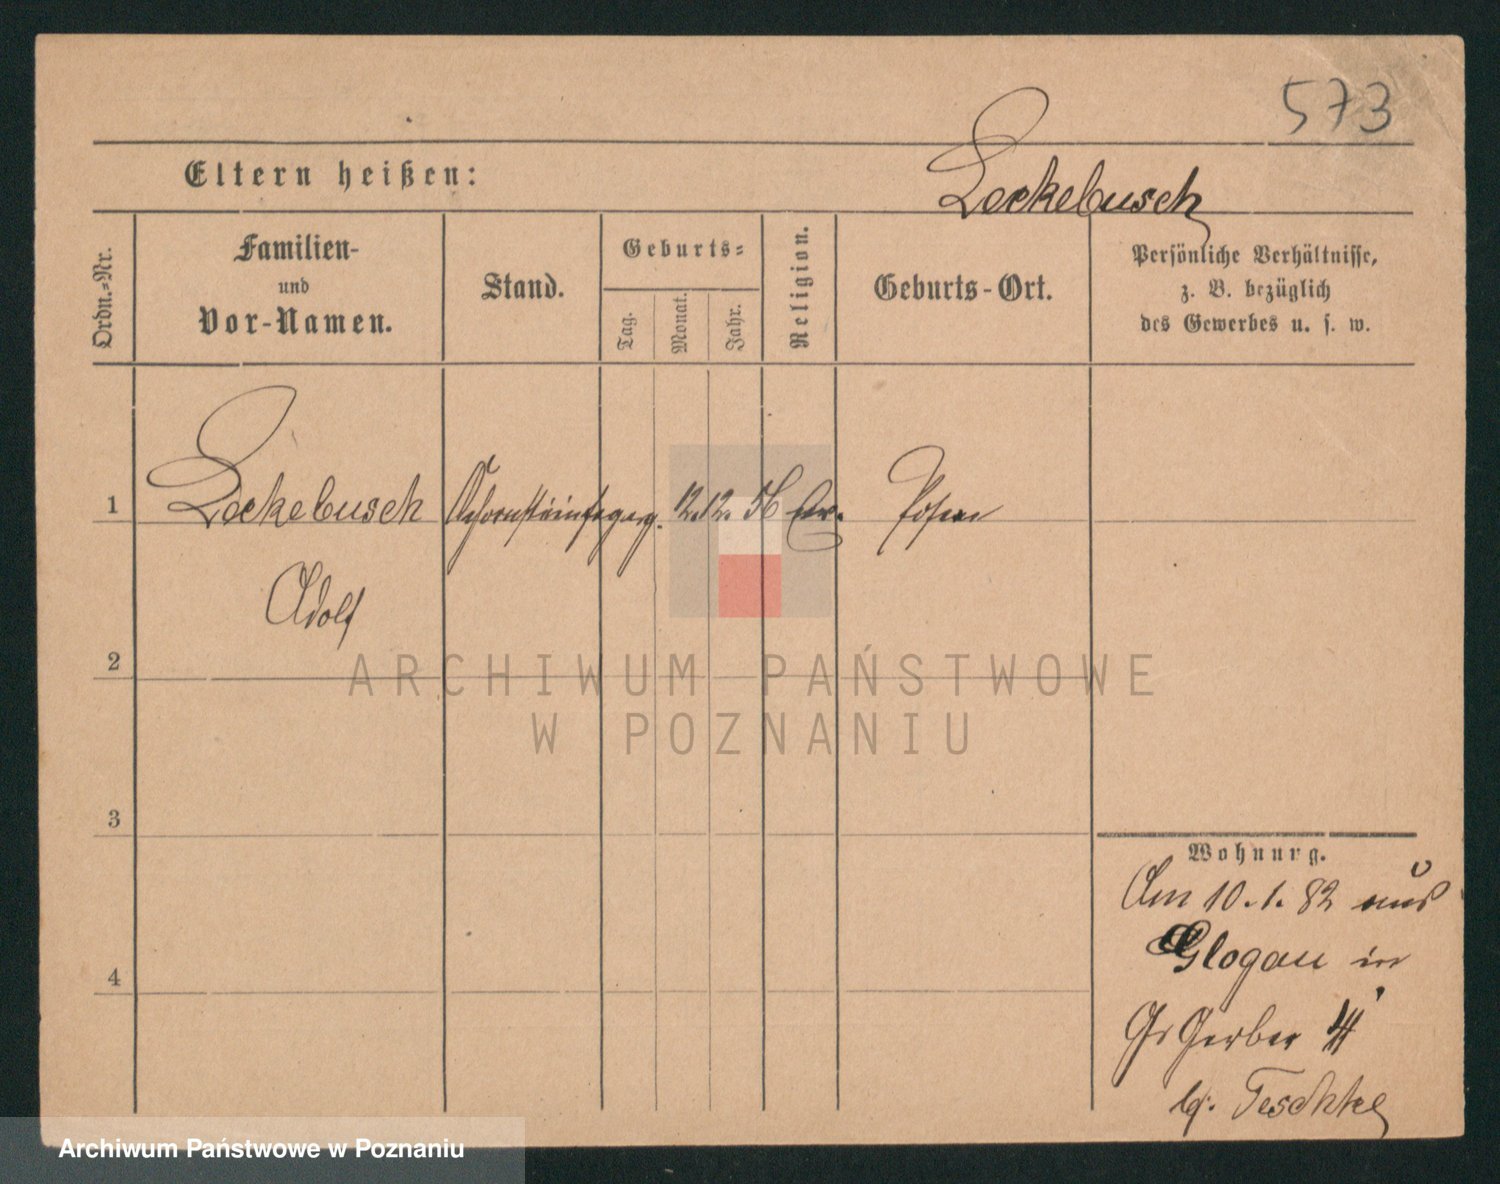 573
Eltern heißen: Lockebusch
Ordn.-Nr.
Familien-
und
Vor-Namen.
Stand.
Geburts-
Tag.
Monat.
Jahr.
Religion.
Geburts-Ort.
Persönliche Verhältnisse,
z. B. bezüglich
des Gewerbes u. s. w.
1 Lockebusch Schornsteinfegerg. 12. 12. 56 Ev. Posen
Adolf
2
ARCHIWUM PAŃSTWOWE
W POZNANIU
3
4
Wohnung.
Am 10.1.82 aus
Glogau in
Gr Gerber
b. Teschke
Archiwum Państwowe w Poznaniu